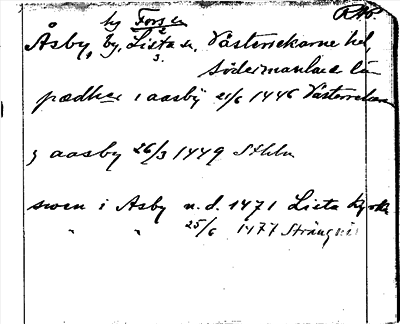 by Forssa
RAP.
Åsby, by, Lista sn, Västerrekarne hd,
2
3.
Södermanland lä
pædher i aasby 21/6 1446 Västerrekar
z aasby 26/3 1449 Sthlm
swen i Asby n.d. 1471 Lista kyrka
" " 25/6 1477 Strängnäs